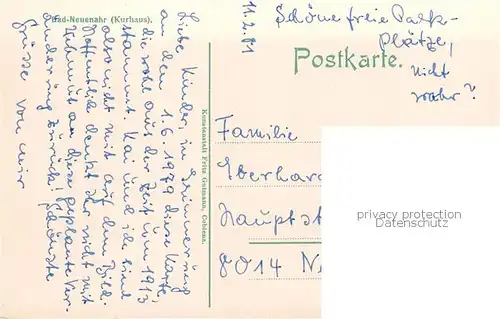 Bad-Neuenahr (Kurhaus).
11.2.81
Schöne freie Park-
plätze,
nicht
wahr?
Postkarte.
Liebe Kinder, in Erinnerung
an den 1.6.1979 diese Karte,
die wohl aus der Zeit um 1913
stammt. Kai und ich sind
also nicht mit auf dem Bild.
Hoffentlich denkt Ihr nicht mit
Wehmut an diese geplante Ver-
änderung zurück! Schönste
Grüsse von mir
Kunstanstalt Fritz Gutmann, Coblenz.
Familie
Eberhard
Hauptst
8014 N
privacy protection
Datenschutz